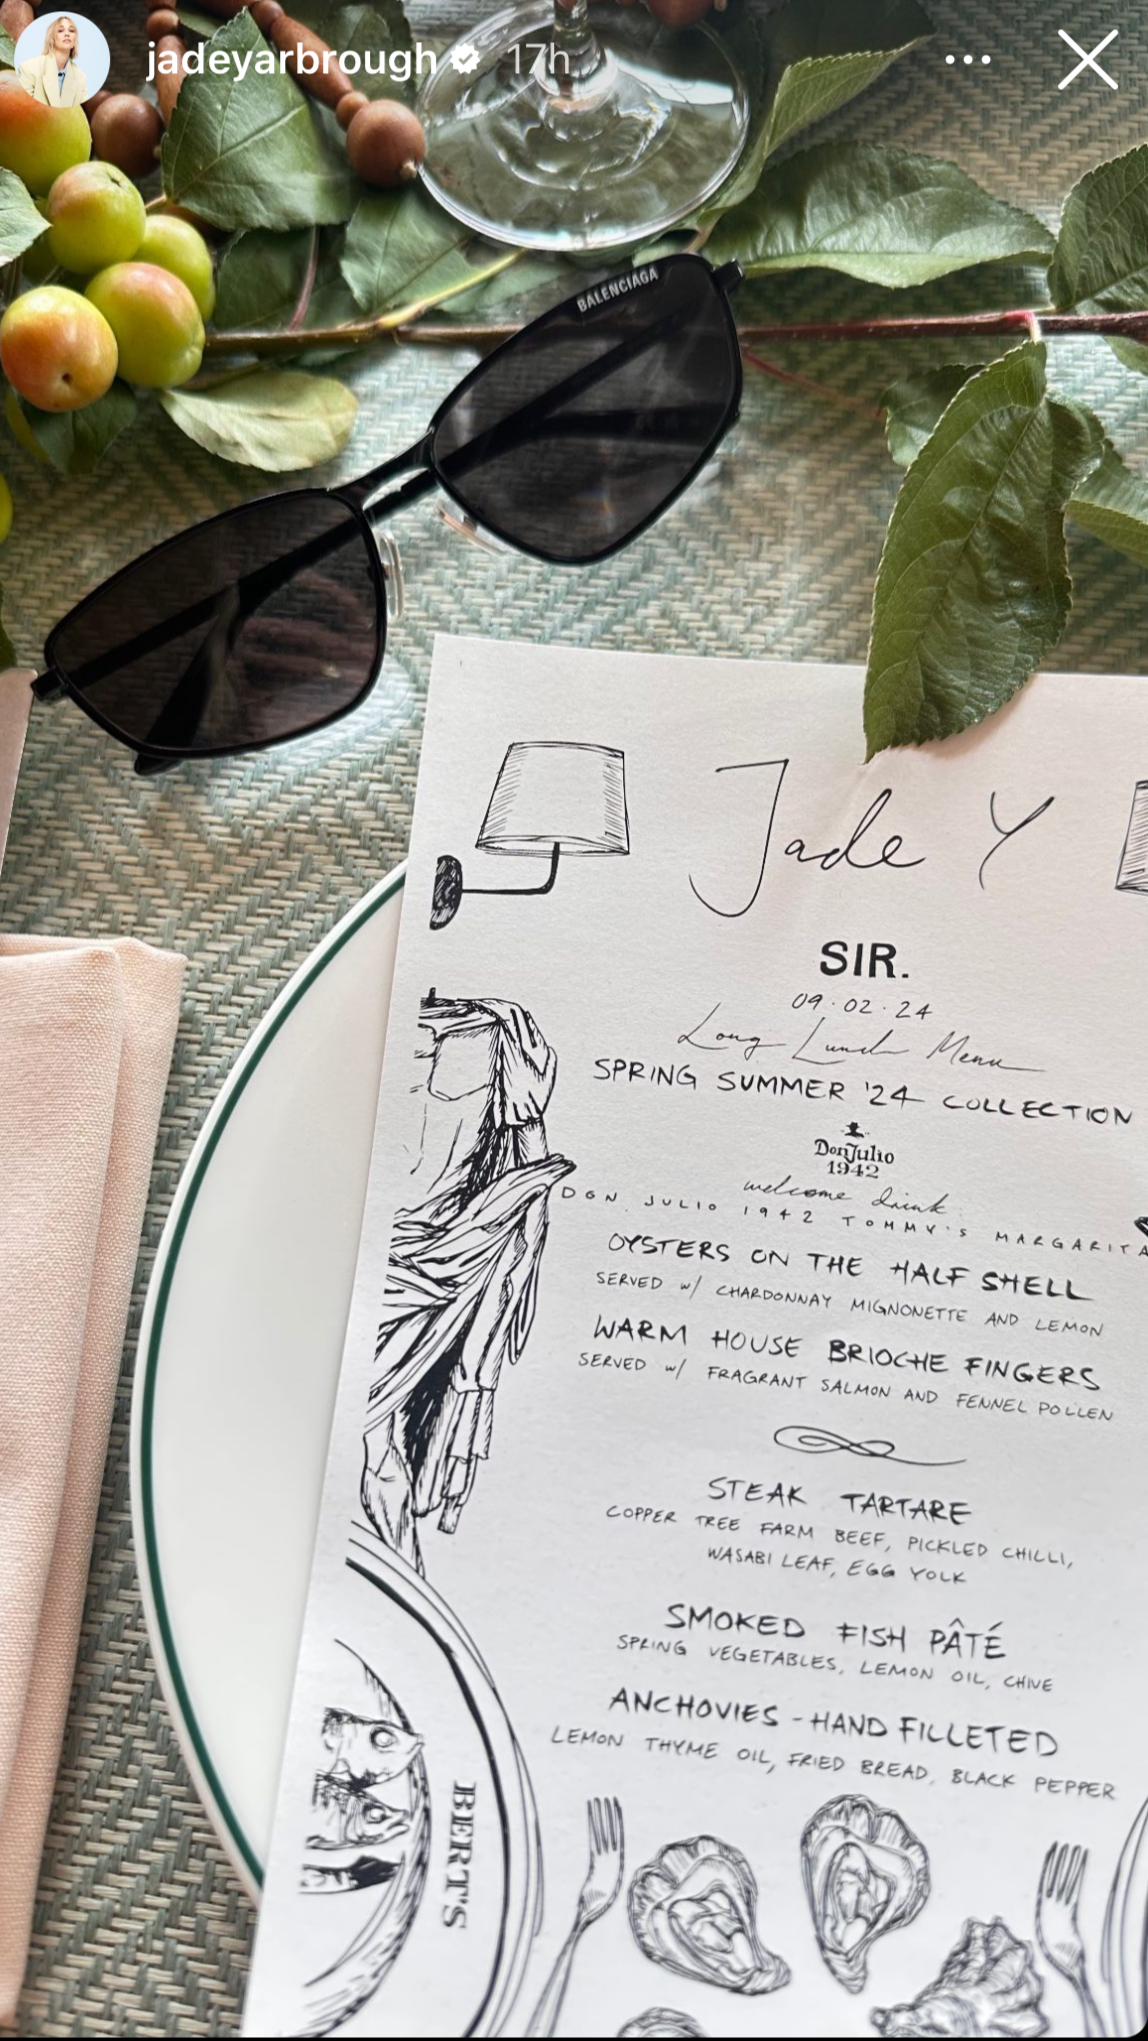 jadeyarbrough 17h
BALENCIAGA
Jade Y
SIR.
09.02.24
Long Lunch Menu
SPRING SUMMER '24 COLLECTION
Don Julio
1942
welcome drink
DON JULIO 1942 TOMMY'S MARGARITA
OYSTERS ON THE HALF SHELL
SERVED w/ CHARDONNAY MIGNONETTE AND LEMON
WARM HOUSE BRIOCHE FINGERS
SERVED w/ FRAGRANT SALMON AND FENNEL POLLEN
STEAK TARTARE
COPPER TREE FARM BEEF, PICKLED CHILLI,
WASABI LEAF, EGG YOLK
SMOKED FISH PÂTÉ
SPRING VEGETABLES, LEMON OIL, CHIVE
ANCHOVIES - HAND FILLETED
LEMON THYME OIL, FRIED BREAD, BLACK PEPPER
BERT'S